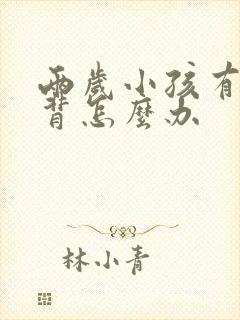 兩歲小孩有
背怎麼办
林小青